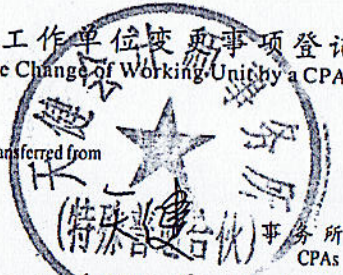 工作单位变更事项登记
e Change of Working Unit by a CPA
ansferred from
天健会计师事务所
(特殊普通合伙)
事务所
CPAs